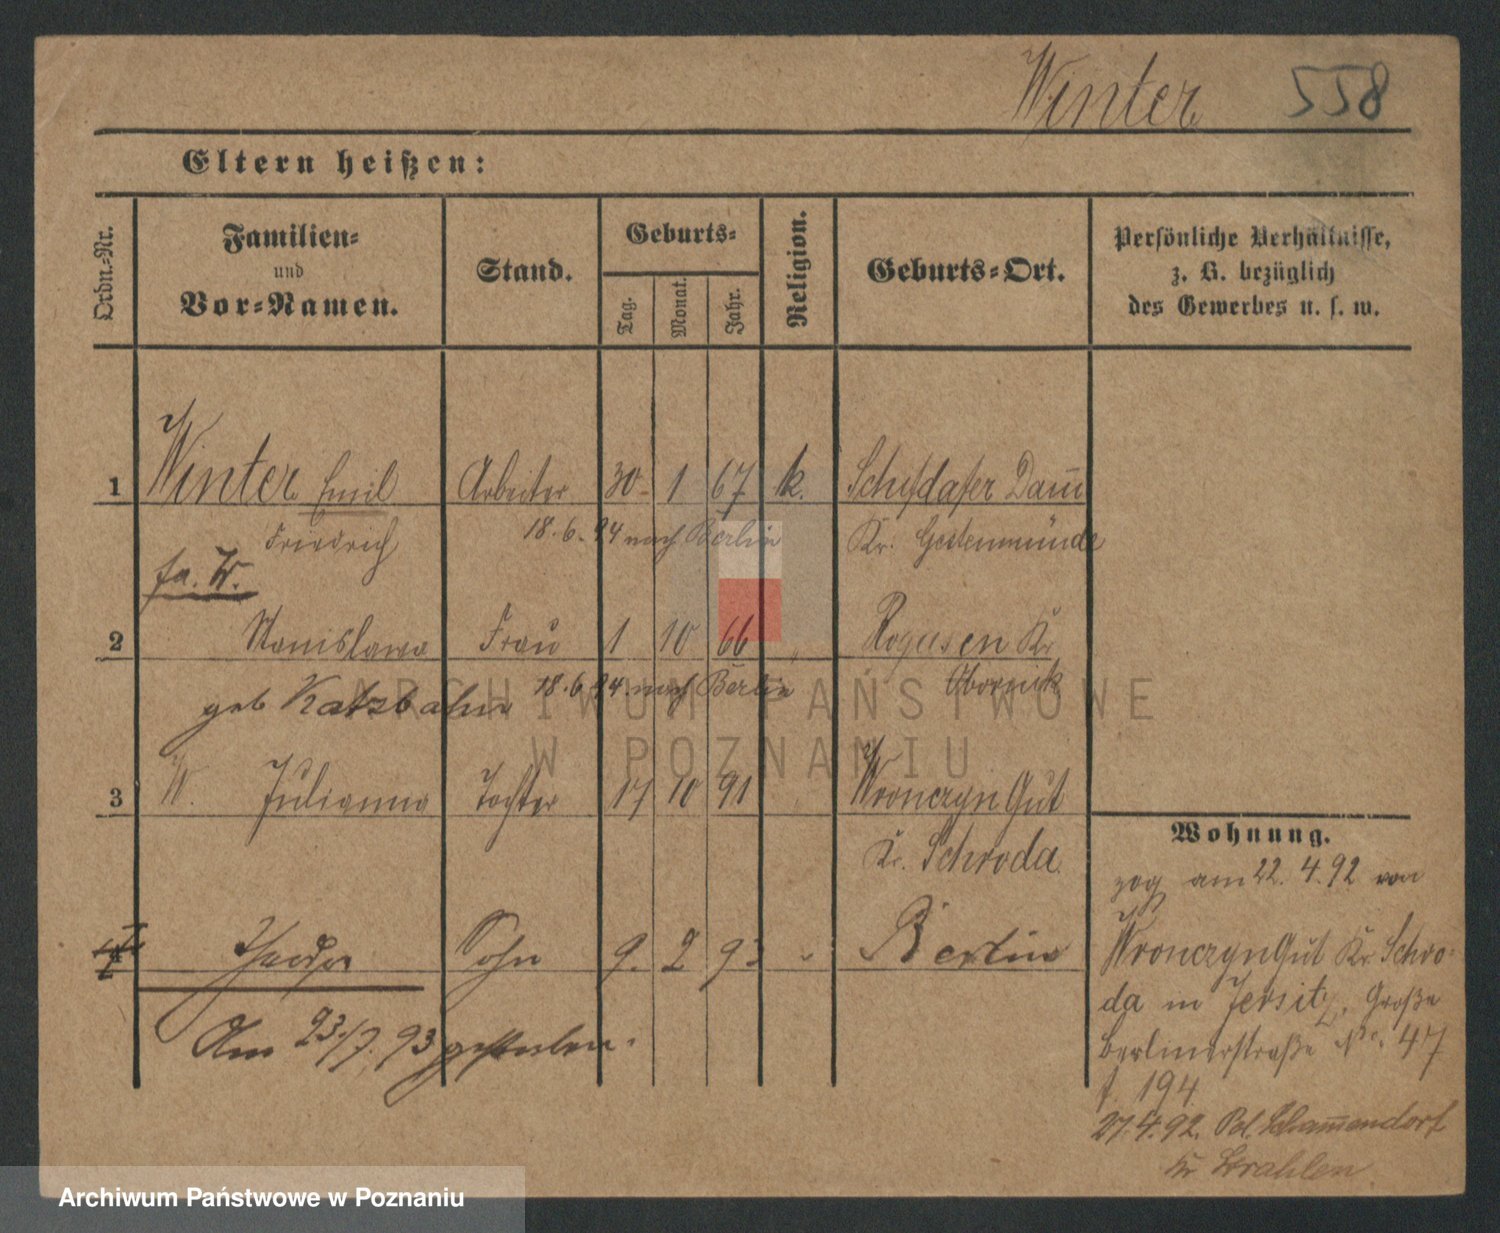 Winter 558
Eltern heißen:
Ordn.-Nr.
Familien-
und
Vor-Namen.
Stand.
Geburts-
Tag.
Monat.
Jahr.
Religion.
Geburts-Ort.
Persönliche Verhältnisse,
z. B. bezüglich
des Gewerbes u. s. w.
1 Winter Emil Arbeiter 30 1 67 k. Damm
Friedrich 18. 6. 94 nach Berlin Kr. Geestemünde
fa. W.
2 Stanislawa Frau 1 10 66 " Rogusen Kr.
geb Katzbahn 18. 6. 94. nach Berlin Obornik
3 W. Julianna Tochter 17 10 91 " Wronczyn Gut
Kr. Schroda
4 Theodor Sohn 9. 2 93 " Berlin
Am 23./7. 93 gestorben.
Wohnung.
zog am 22. 4. 92 von
Wronczyn Gut Kr. Schro-
da in Jersitz, Große
Berlinerstraße No. 47
f. 194.
27. 4. 92. Pol.
Kr
ARCHIWUM PAŃSTWOWE
W POZNANIU
Archiwum Państwowe w Poznaniu